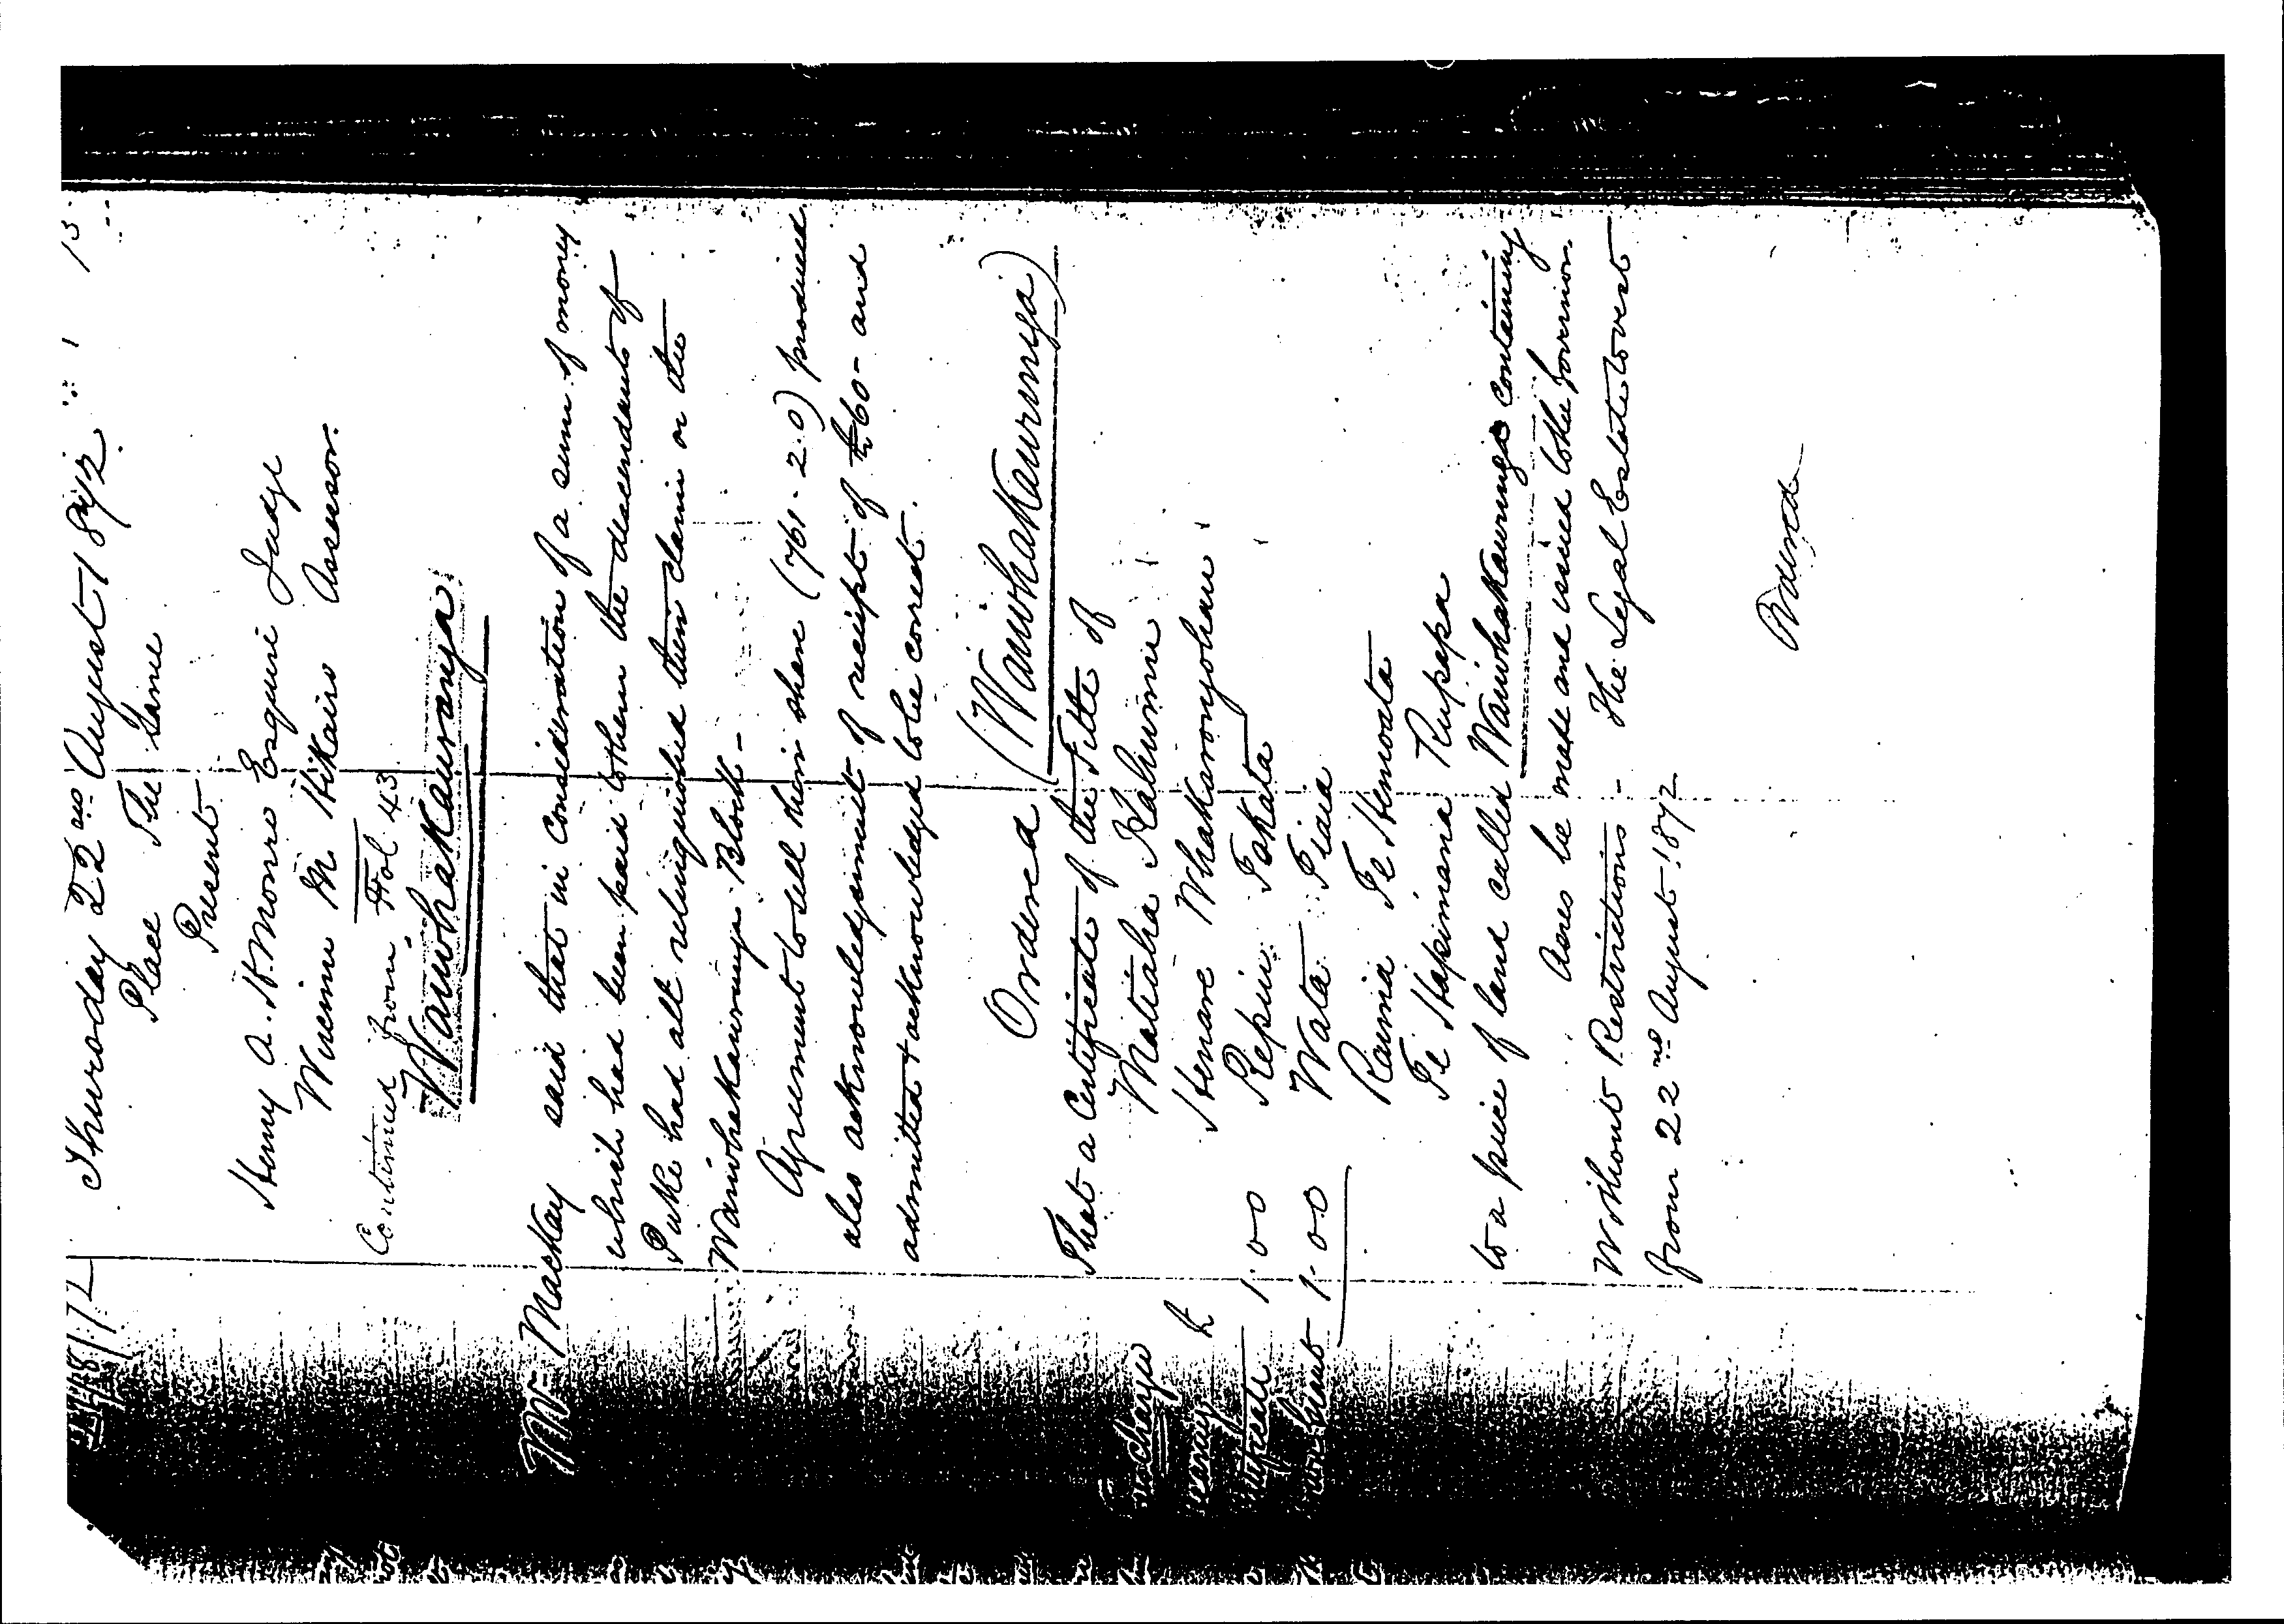 22/8/72
Thursday 22nd August 1872
Place The Same
Present
Henry A. H. Monro Esquire Judge
Wiremu M Hikairo Assessor.
Continued from Fol 43
Waiwhakaurunga
Mr Mackay said that in consideration of a sum of money
which had been paid to them the descendants of
Puke had all relinquished their claim on the
Waiwhakaurunga Block -
Agreement to sell their share (761. 2. 0) produced
also acknowledgement of receipt of £60 - and
admitted & acknowledged to be correct.
Ordered (Waiwhakaurunga)
That a Certificate of the Title of
Matiaha
Henare Whakarongohau
Repiu Takata
Wata Tiaia
Rawiri Te Hemoata
Te Hapimana Rupapa
1. 0 0
1. 0 0
to a piece of land called Waiwhakaurunga containing
Acres be made and issued to the Governor
Without Restrictions - The Legal Estate to vest
from 22nd August 1872